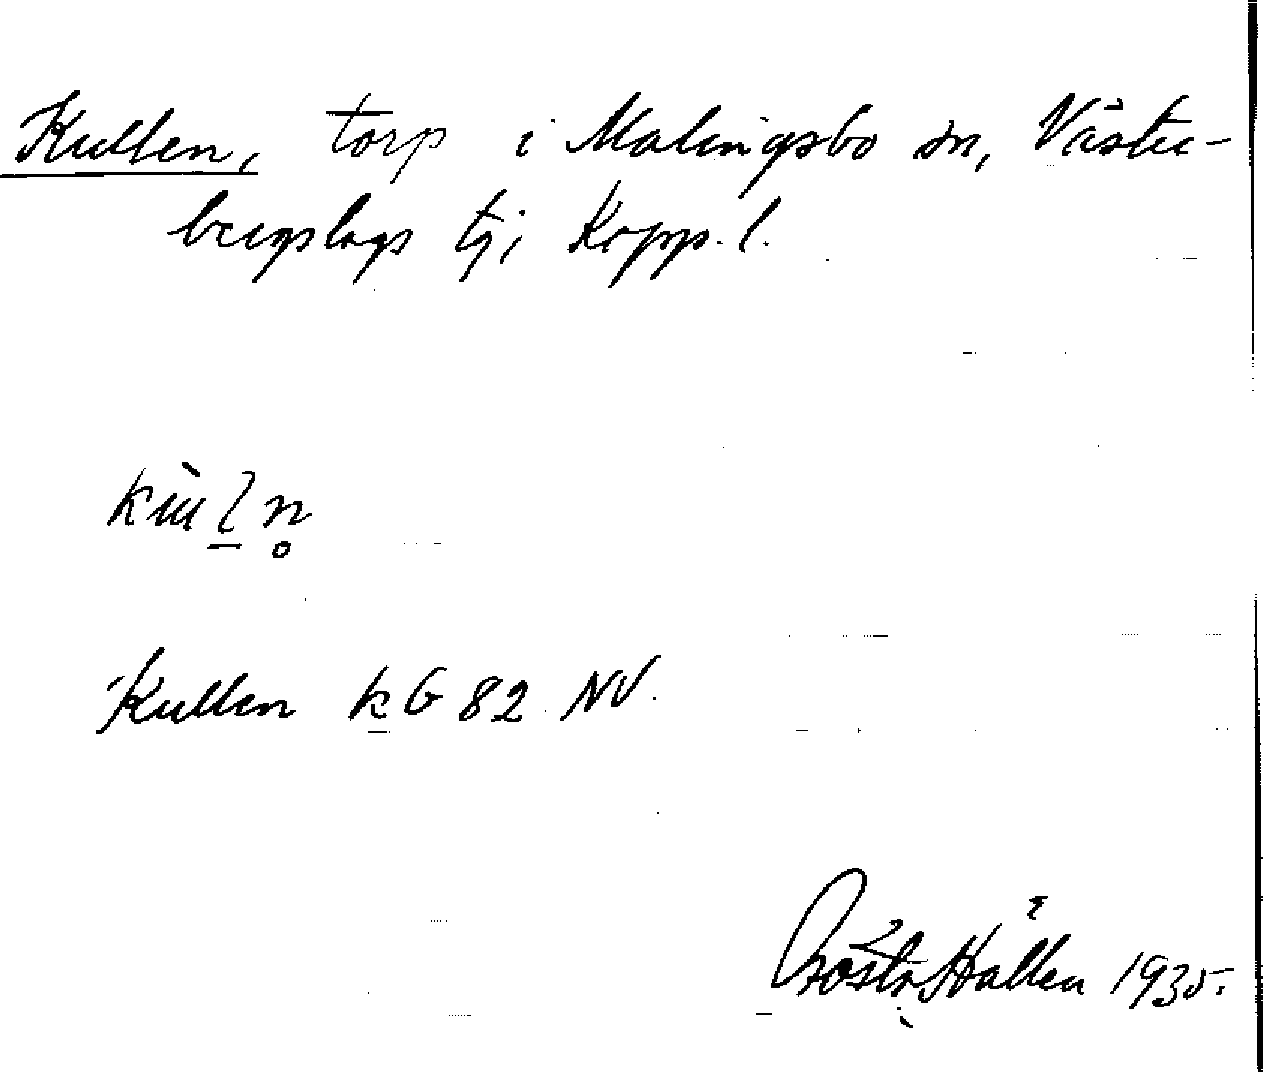 Kullen, torp i Malingsbo sn, Väster-
bergslags tg; Kopp. l.
Kullen k G 82 NV.
Hållen 1935.